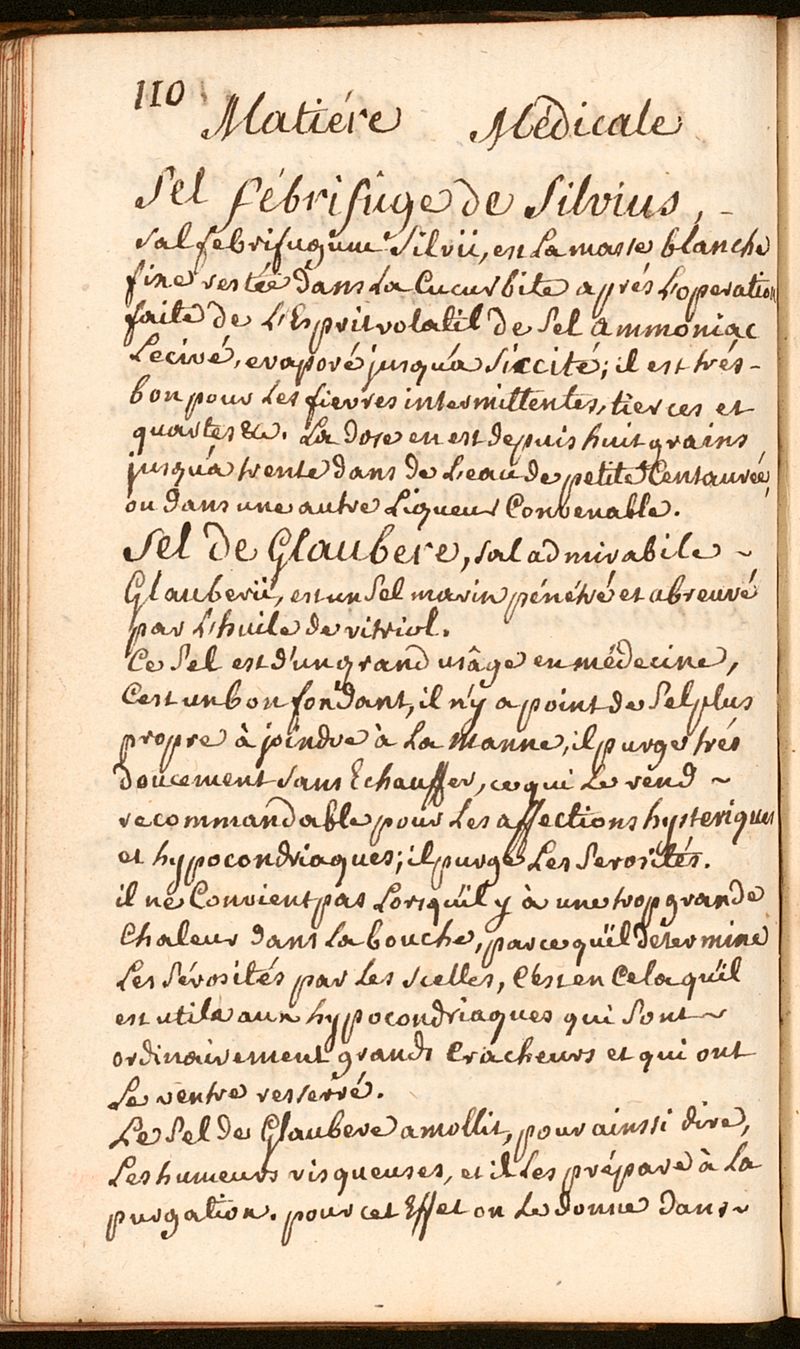 110
Matiére Médicale
Sel fébrifûge de Silvius, -
Sal febrifugum Silvii, est La masse blanche
fine restée dans La Cucurbite aprés L'operation
faite de L'Esprit volatil de Sel ammoniac
Lecivé, evaporé jusqu'a Siccité; il est trés-
bon pour Les fievres intermittentes, tierces et
quartes &c. La dose en est depuis huit grains
jusqu'a trente dans de L'eau de petite Centaurée,
ou dans une autre Liqueur Convenable.
Sel de Glaubere, Sal admirabile ~
Glauberii, est un Sel marin pénétré et abreuvé
par L'huile de vitriol.
Ce Sel est d'un grand usâge en médecine,
C'est un bon fondant, il n'y a point de Sel plus
propre à joindre à La Manne, il purge trés
doucement sans Echauffer, ce qui Le rend ~
recommandable pour Les affections hysteriques
et hypocondriaques; il purge Les Serosités.
il ne Convient pas Lorsqu'il y à une trop grande
Chaleur dans La bouche, parce qu'il détermine
Les Sérosités par Les scelles, C'est en Cela qu'il
est utile aux hypocondriaques qui Sont ~
ordinairement grands Cracheurs et qui ont
Le ventre resserré.
Le Sel de Glaubere amollit, pour ainssi dire,
Les humeurs visqueuses, et il Les prépare à La
purgation. pour cet Effet on Le donne dans ~